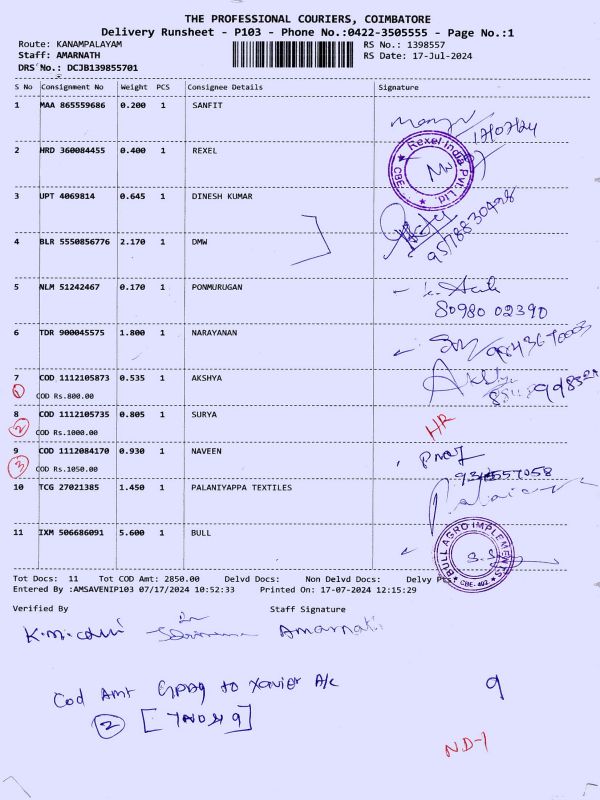 THE PROFESSIONAL COURIERS, COIMBATORE
Delivery Runsheet - P103 - Phone No.:0422-3505555 - Page No.:1
Route: KANAMPALAYAM
Staff: AMARNATH
DRS No.: DCJB139855701
RS No.: 1398557
RS Date: 17-Jul-2024
S No Consignment No Weight PCS Consignee Details Signature
1 MAA 865559686 0.200 1 SANFIT
17/07/24
2 HRD 360084455 0.400 1 REXEL
Rexel India Pvt. Ltd. CBE.
3 UPT 4069814 0.645 1 DINESH KUMAR
4 BLR 5550856776 2.170 1 DMW
5 NLM 51242467 0.170 1 PONMURUGAN
80980 02390
6 TDR 900045575 1.800 1 NARAYANAN
7 COD 1112105873 0.535 1 AKSHYA
1 COD Rs.800.00
8 COD 1112105735 0.805 1 SURYA HR
2 COD Rs.1000.00
9 COD 1112084170 0.930 1 NAVEEN
3 COD Rs.1050.00
10 TCG 27021385 1.450 1 PALANIYAPPA TEXTILES
11 IXM 506686091 5.600 1 BULL
BULL AGRO IMPLEMENTS CBE-402
Tot Docs: 11 Tot COD Amt: 2850.00 Delvd Docs: Non Delvd Docs: Delvy Pct
Entered By :AMSAVENIP103 07/17/2024 10:52:33 Printed On: 17-07-2024 12:15:29
Verified By Staff Signature
Amarnath
Cod Amt GPay to Xavier A/c 9
2
ND-1